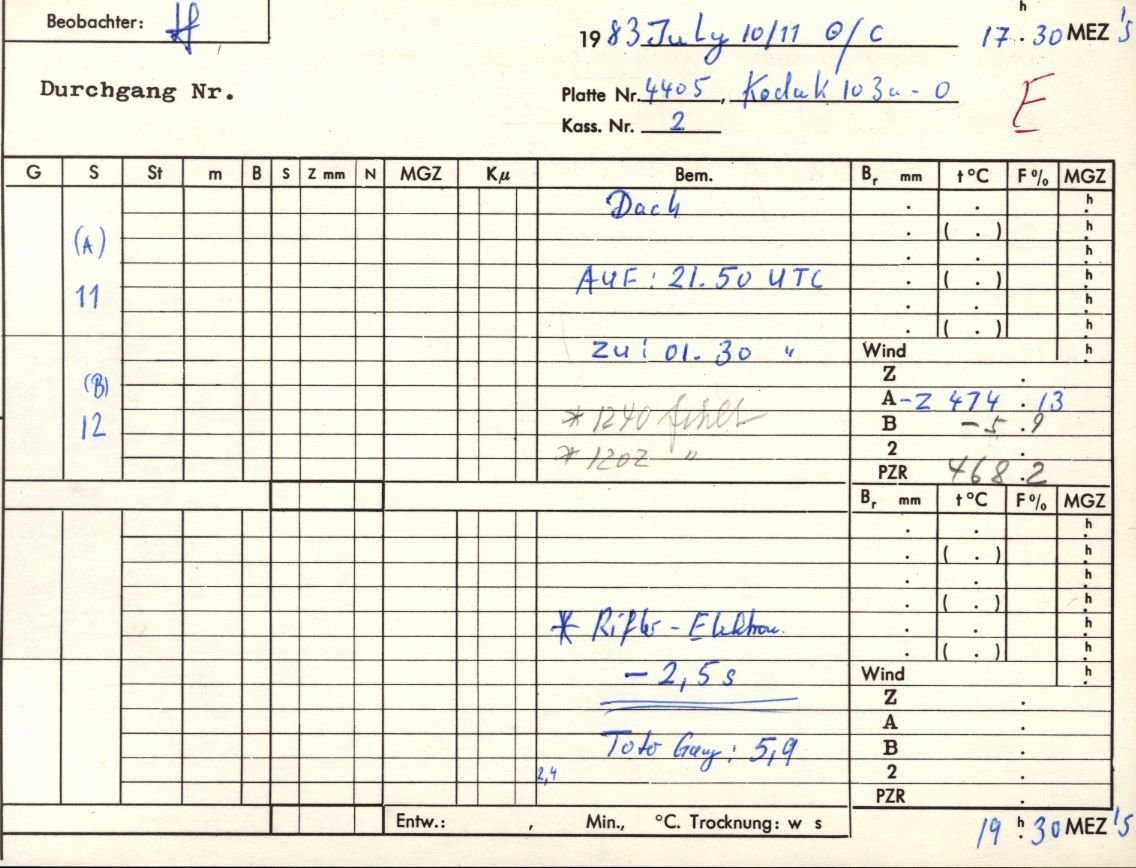 Beobachter: H
1983 July 10/11 O/C 17 h . 30 MEZ 'S
Durchgang Nr.
Platte Nr. 4405, Kodak 103a-O
E
Kass. Nr. 2
G S St m B S Z mm N MGZ Kμ Bem. Br mm t °C F % MGZ
Dach . . h
(A) . ( . ) h
. . h
11 AUF: 21.50 UTC . ( . ) h
. . h
. ( . ) h
zu: 01.30 " Wind h
(B) Z .
A -Z 474 . 13
12 * 1240 fehlt B -5 . 9
* 1202 " 2 .
PZR 468.2
Br mm t °C F % MGZ
. . h
. ( . ) h
. . h
. ( . ) h
* Rifler - Elektron. . . h
. ( . ) h
- 2,5 s Wind h
Z .
A .
Toto Gang: 5,9 B .
2,4 2 .
PZR .
Entw.: , Min., °C. Trocknung: w s
19 h . 30 MEZ 'S